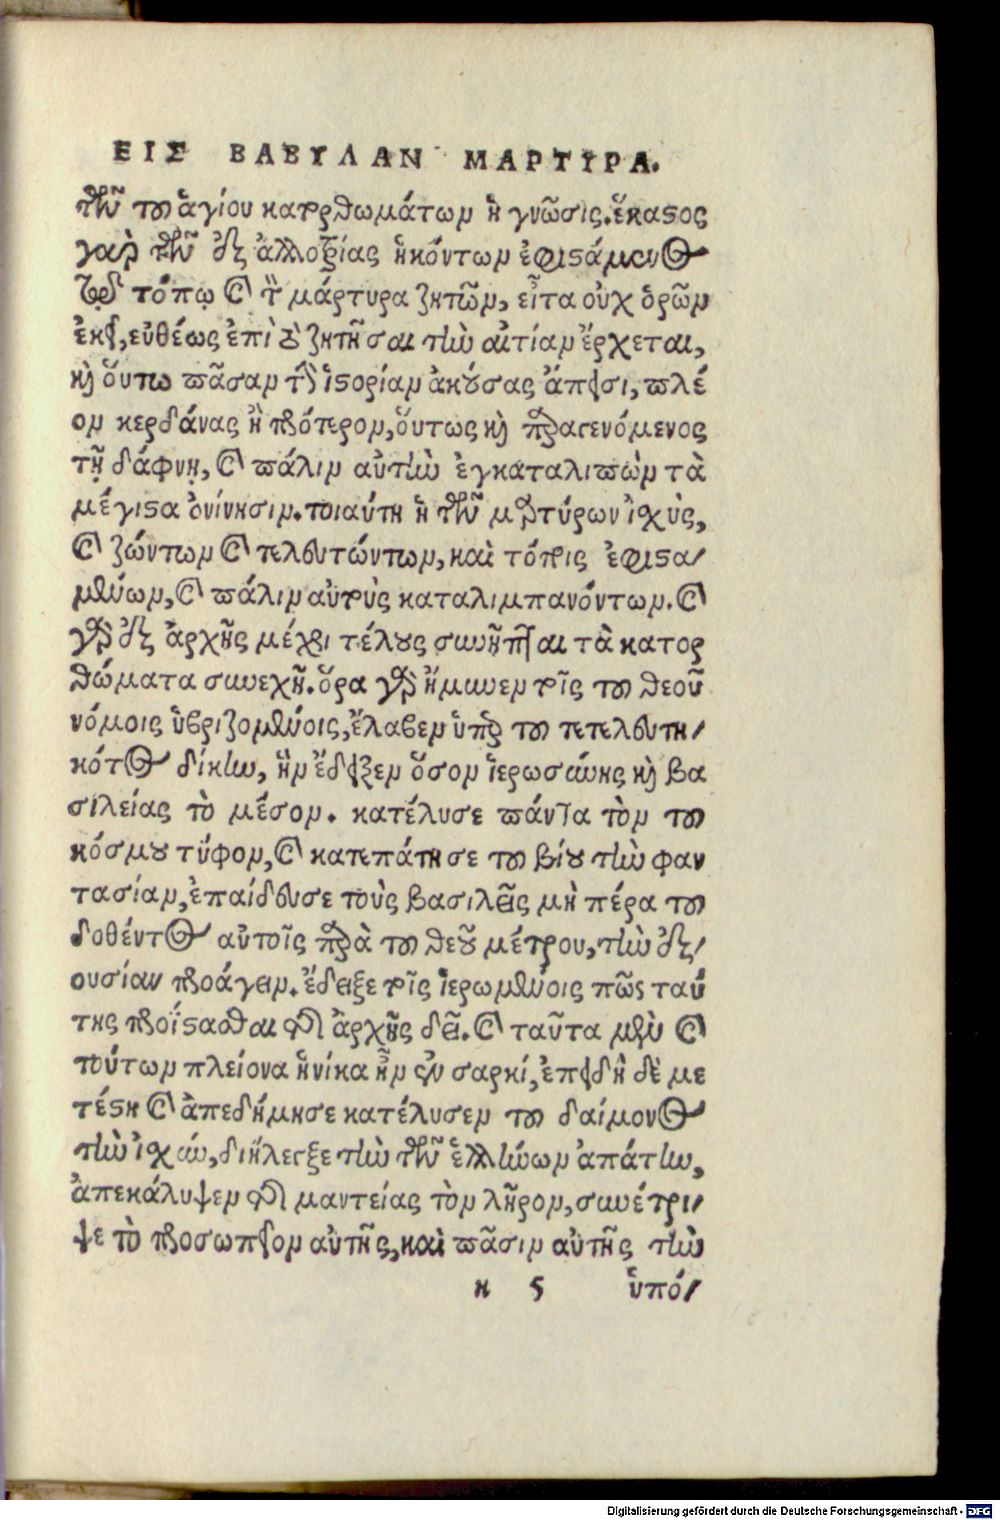 ΕΙΣ ΒΑΒΥΛΑΝ ΜΑΡΤΥΡΑ.
τῶν τοῦ ἁγίου κατορθωμάτων ἡ γνῶσις. ἕκαστος
γὰρ τῶν ἐξ ἀλλοδαπίας ἡκόντων ἐφιστάμενος
τῷδε τόπῳ καὶ τὸν μάρτυρα ζητῶν, εἶτα οὐχ ὁρῶν
ἐκεῖ, εὐθέως ἐπὶ τὸ ζητῆσαι τὴν αἰτίαν ἔρχεται,
καὶ οὕτω πᾶσαν τὴν ἱστορίαν ἀκούσας ἄπεισι, πλέ
ον κερδάνας ἢ πρότερον, οὕτως καὶ παραγενόμενος
τῇ δάφνῃ, καὶ πάλιν αὐτὴν ἐγκαταλιπὼν τὰ
μέγιστα ὀνίνησιν. τοιαύτη ἡ τῶν μαρτύρων ἰσχὺς,
καὶ ζώντων καὶ τελευτώντων, καὶ τόποις ἐφιστα/
μένων, καὶ πάλιν αὐτοὺς καταλιμπανόντων. καὶ
γὰρ ἐξ ἀρχῆς μέχρι τέλους συνῆπται τὰ κατορ
θώματα συνεχῆ. ὅρα γὰρ ἤμυνεν τοῖς τοῦ θεοῦ
νόμοις ὑβριζομένοις, ἔλαβεν ὑπὲρ τοῦ τετελευτη/
κότος δίκην, ἣν ἔδειξεν ὅσον ἱερωσύνης καὶ βα
σιλείας τὸ μέσον. κατέλυσε πάντα τὸν τοῦ
κόσμου τύφον, καὶ κατεπάτησε τοῦ βίου τὴν φαν
τασίαν, ἐπαίδευσε τοὺς βασιλεῖς μὴ πέρα τοῦ
δοθέντος αὐτοῖς παρὰ τοῦ θεοῦ μέτρου, τὴν ἐξ/
ουσίαν προάγειν. ἔδειξε τοῖς ἱερωμένοις πῶς ταύ
της προΐστασθαι τῆς ἀρχῆς δεῖ. καὶ ταῦτα μὲν καὶ
τούτων πλείονα ἡνίκα ἦν ἐν σαρκί, ἐπειδὴ δὲ με
τέστη καὶ ἀπεδήμησε κατέλυσεν τοῦ δαίμονος
τὴν ἰσχύν, διήλεγξε τὴν τῶν ἑλλήνων ἀπάτην,
ἀπεκάλυψεν τῆς μαντείας τὸν λῆρον, συνέτρι/
ψε τὸ προσωπεῖον αὐτῆς, καὶ πᾶσιν αὐτῆς τὴν
κ 5 ὑπό/
Digitalisierung gefördert durch die Deutsche Forschungsgemeinschaft - DFG